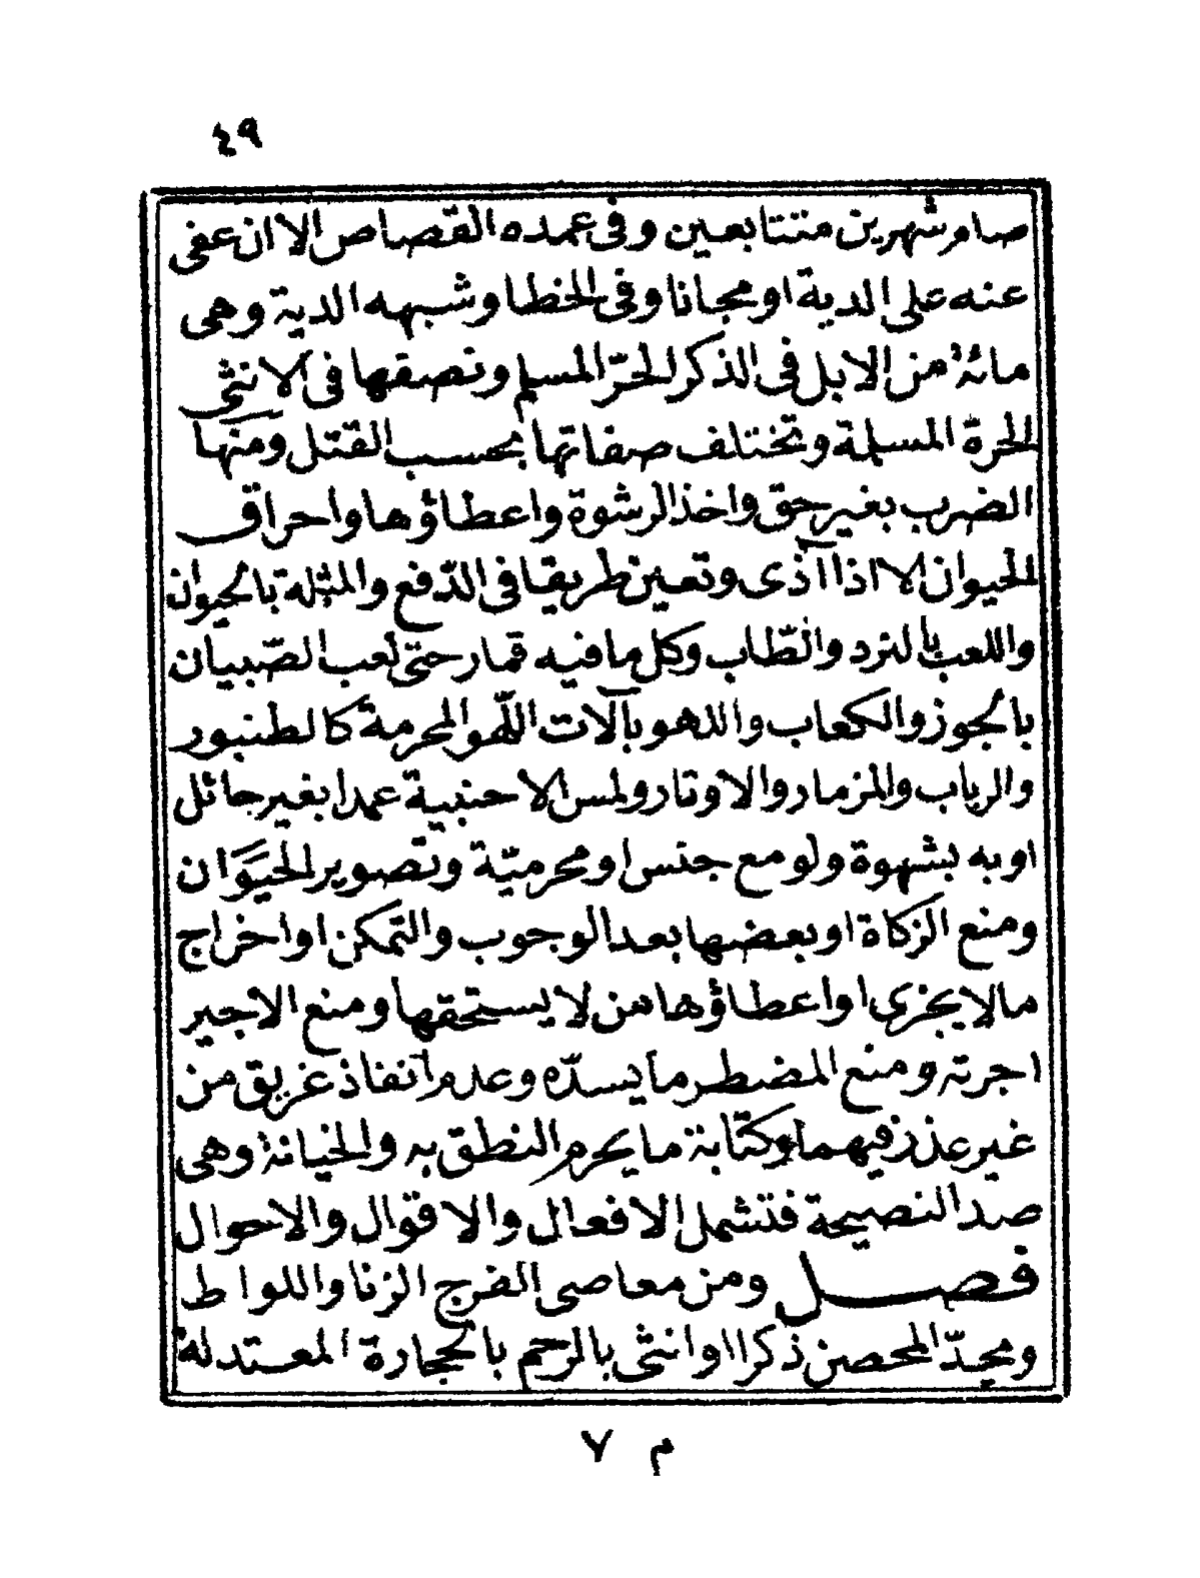 ٤٩
صام شهرين متتابعين وفى عمده القصاص الا ان عفى
عنه على الدية او مجانا وفى الخطا وشبهه الدية وهى
مائة من الابل فى الذكر الحرّ المسلم ونصفها فى الانثى
الحرة المسلمة وتختلف صفاتها بحسب القتل ومنها
الضرب بغير حق واخذ الرشوة واعطاؤها واحراق
الحيوان الا اذا آذى وتعين طريقا فى الدّفع والمثلة بالحيوان
واللعب بالنرد والطّاب وكل ما فيه قمار حتى لعب الصّبيان
بالجوز والكعاب واللهو بآلات اللّهو المحرمة كالطنبور
والرباب والمزمار والاوتار ولمس الاجنبية عمدا بغير حائل
او به بشهوة ولو مع جنس او محرميّة وتصوير الحَيَوَان
ومنع الزكاة او بعضها بعد الوجوب والتمكن او اخراج
مالا يجزى او اعطاؤها من لا يستحقها ومنع الاجير
اجرته ومنع المضطر ما يسدّه وعدم انقاذ غريق من
غير عذر فيهما وكتابة ما يحرم النطق به والخيانة وهى
ضد النصيحة فتشمل الافعال والاقوال والاحوال
فصل ومن معاصى الفرج الزنا واللواط
ويحدّ المحصن ذكرا او انثى بالرجم بالحجارة المعتدلة
م ٧